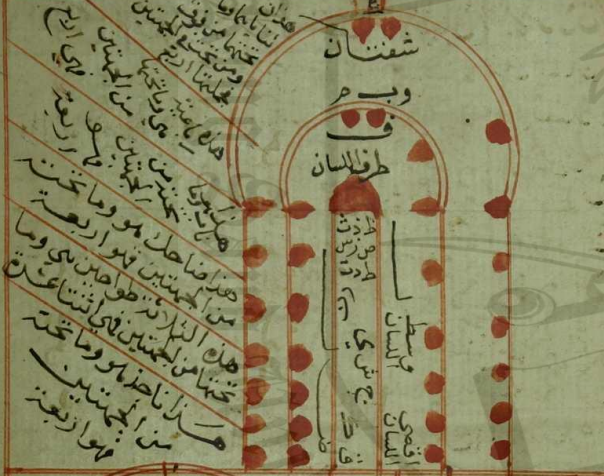 شفتان
و ب م
ف
طرف اللسان
ظ ذ ث
ص ز س
ط د ت
ج ش ي
وسط اللسان
اقصى اللسان
هذان
ثنايا وما
تحتها من فوق
ومن تحت الجهتين
فجملتها اربع
هذه رباعية
هي وما تحتها
من الجهتين
فهي اربع
هذا ناب وما
تحته من
الجهتين فهو
اربعة
هذا ضاحك هو وما تحته
من الجهتين فهو اربعة
هذه الثلاثة طواحين هي وما
تحتها من الجهتين فهي اثنتا عشرة
هذا ناجذ هو وما تحته
من الجهتين
فهو اربعة